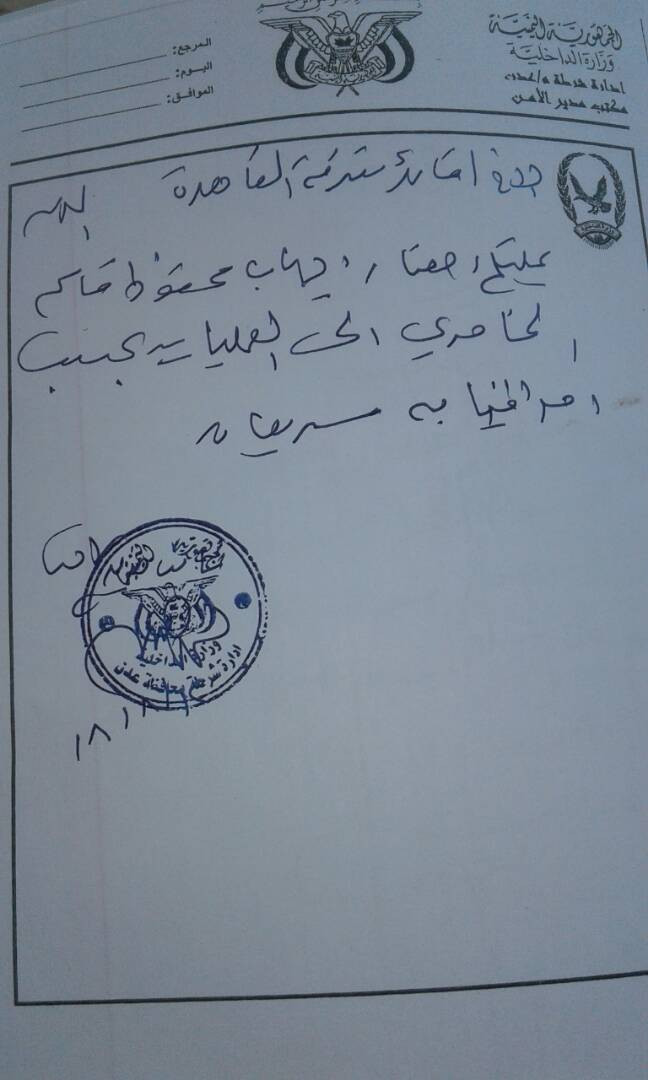 الجمهورية اليمنية
وزارة الداخلية
ادارة شرطة م/عدن
مكتب مدير الأمن
المرجع:
اليوم:
الموافق:
الاخ / قائد شرطة القاهرة
عليكم احضار / ايهاب محفوظ قاسم
الى العمليات بحسب
امر النيابة سريعا
وزارة الداخلية
ادارة شرطة محافظة عدن